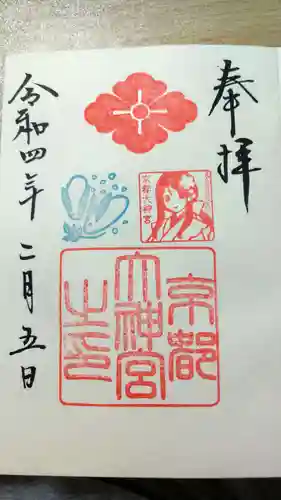 奉拝
京都大神宮
京都
大神宮
之印
令和四年 二月五日